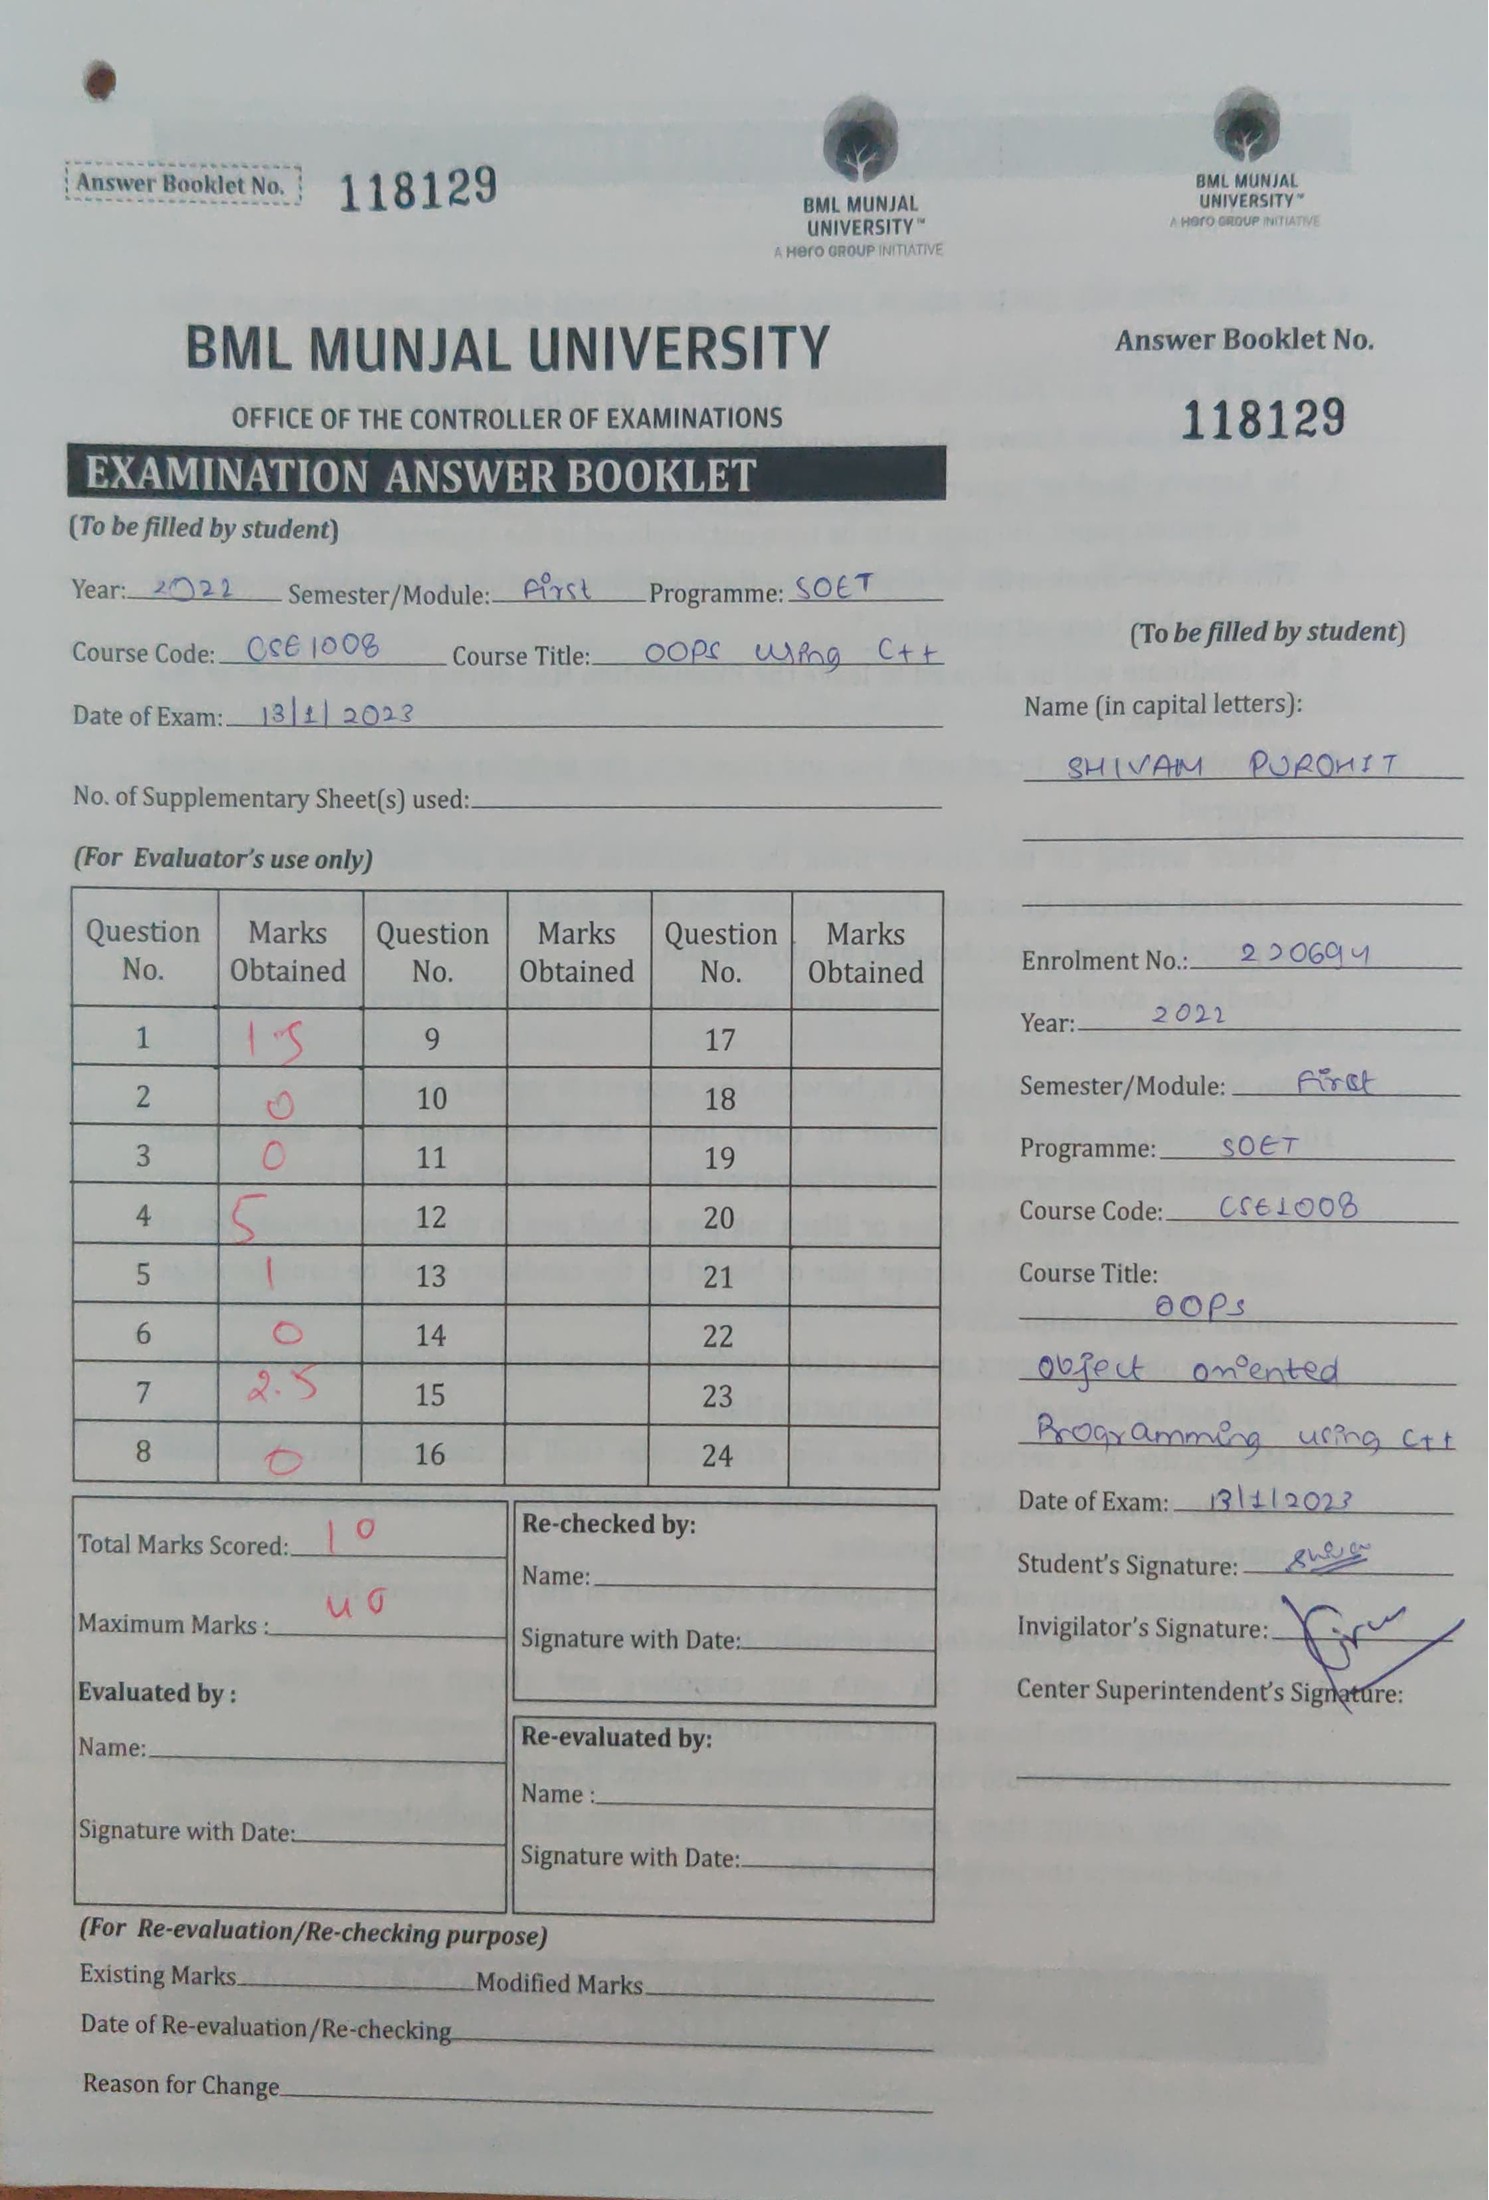 Answer Booklet No. 118129
BML MUNJAL
UNIVERSITY™
A Hero GROUP INITIATIVE
BML MUNJAL UNIVERSITY
OFFICE OF THE CONTROLLER OF EXAMINATIONS
EXAMINATION ANSWER BOOKLET
(To be filled by student)
Year: 2022 Semester/Module: First Programme: SOET
Course Code: CSE1008 Course Title: OOPS using C++
Date of Exam: 13/1/2023
No. of Supplementary Sheet(s) used:
(For Evaluator's use only)
Question No. Marks Obtained Question No. Marks Obtained Question No. Marks Obtained
1 1.5 9 17
2 0 10 18
3 0 11 19
4 5 12 20
5 1 13 21
6 0 14 22
7 2.5 15 23
8 0 16 24
Total Marks Scored: 10
Maximum Marks : 40
Evaluated by :
Name:
Signature with Date:
Re-checked by:
Name:
Signature with Date:
Re-evaluated by:
Name :
Signature with Date:
(For Re-evaluation/Re-checking purpose)
Existing Marks Modified Marks
Date of Re-evaluation/Re-checking
Reason for Change
BML MUNJAL
UNIVERSITY™
A Hero GROUP INITIATIVE
Answer Booklet No.
118129
(To be filled by student)
Name (in capital letters):
SHIVAM PUROHIT
Enrolment No.: 220694
Year: 2022
Semester/Module: First
Programme: SOET
Course Code: CSE1008
Course Title:
OOPS
Object oriented
Programming using C++
Date of Exam: 13/1/2023
Student's Signature:
Invigilator's Signature:
Center Superintendent's Signature: